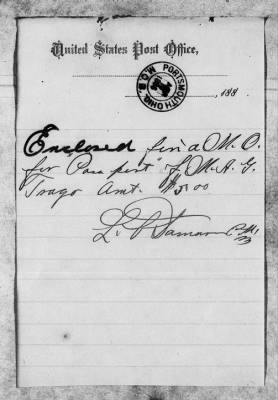 United States Post Office,
PORTSMOUTH, OHIO. M.O.B.
, 188
Enclosed find a M. O.
for "Passport" of M. A. G.
Trago Amt. $5.00
L. P.
P.M.